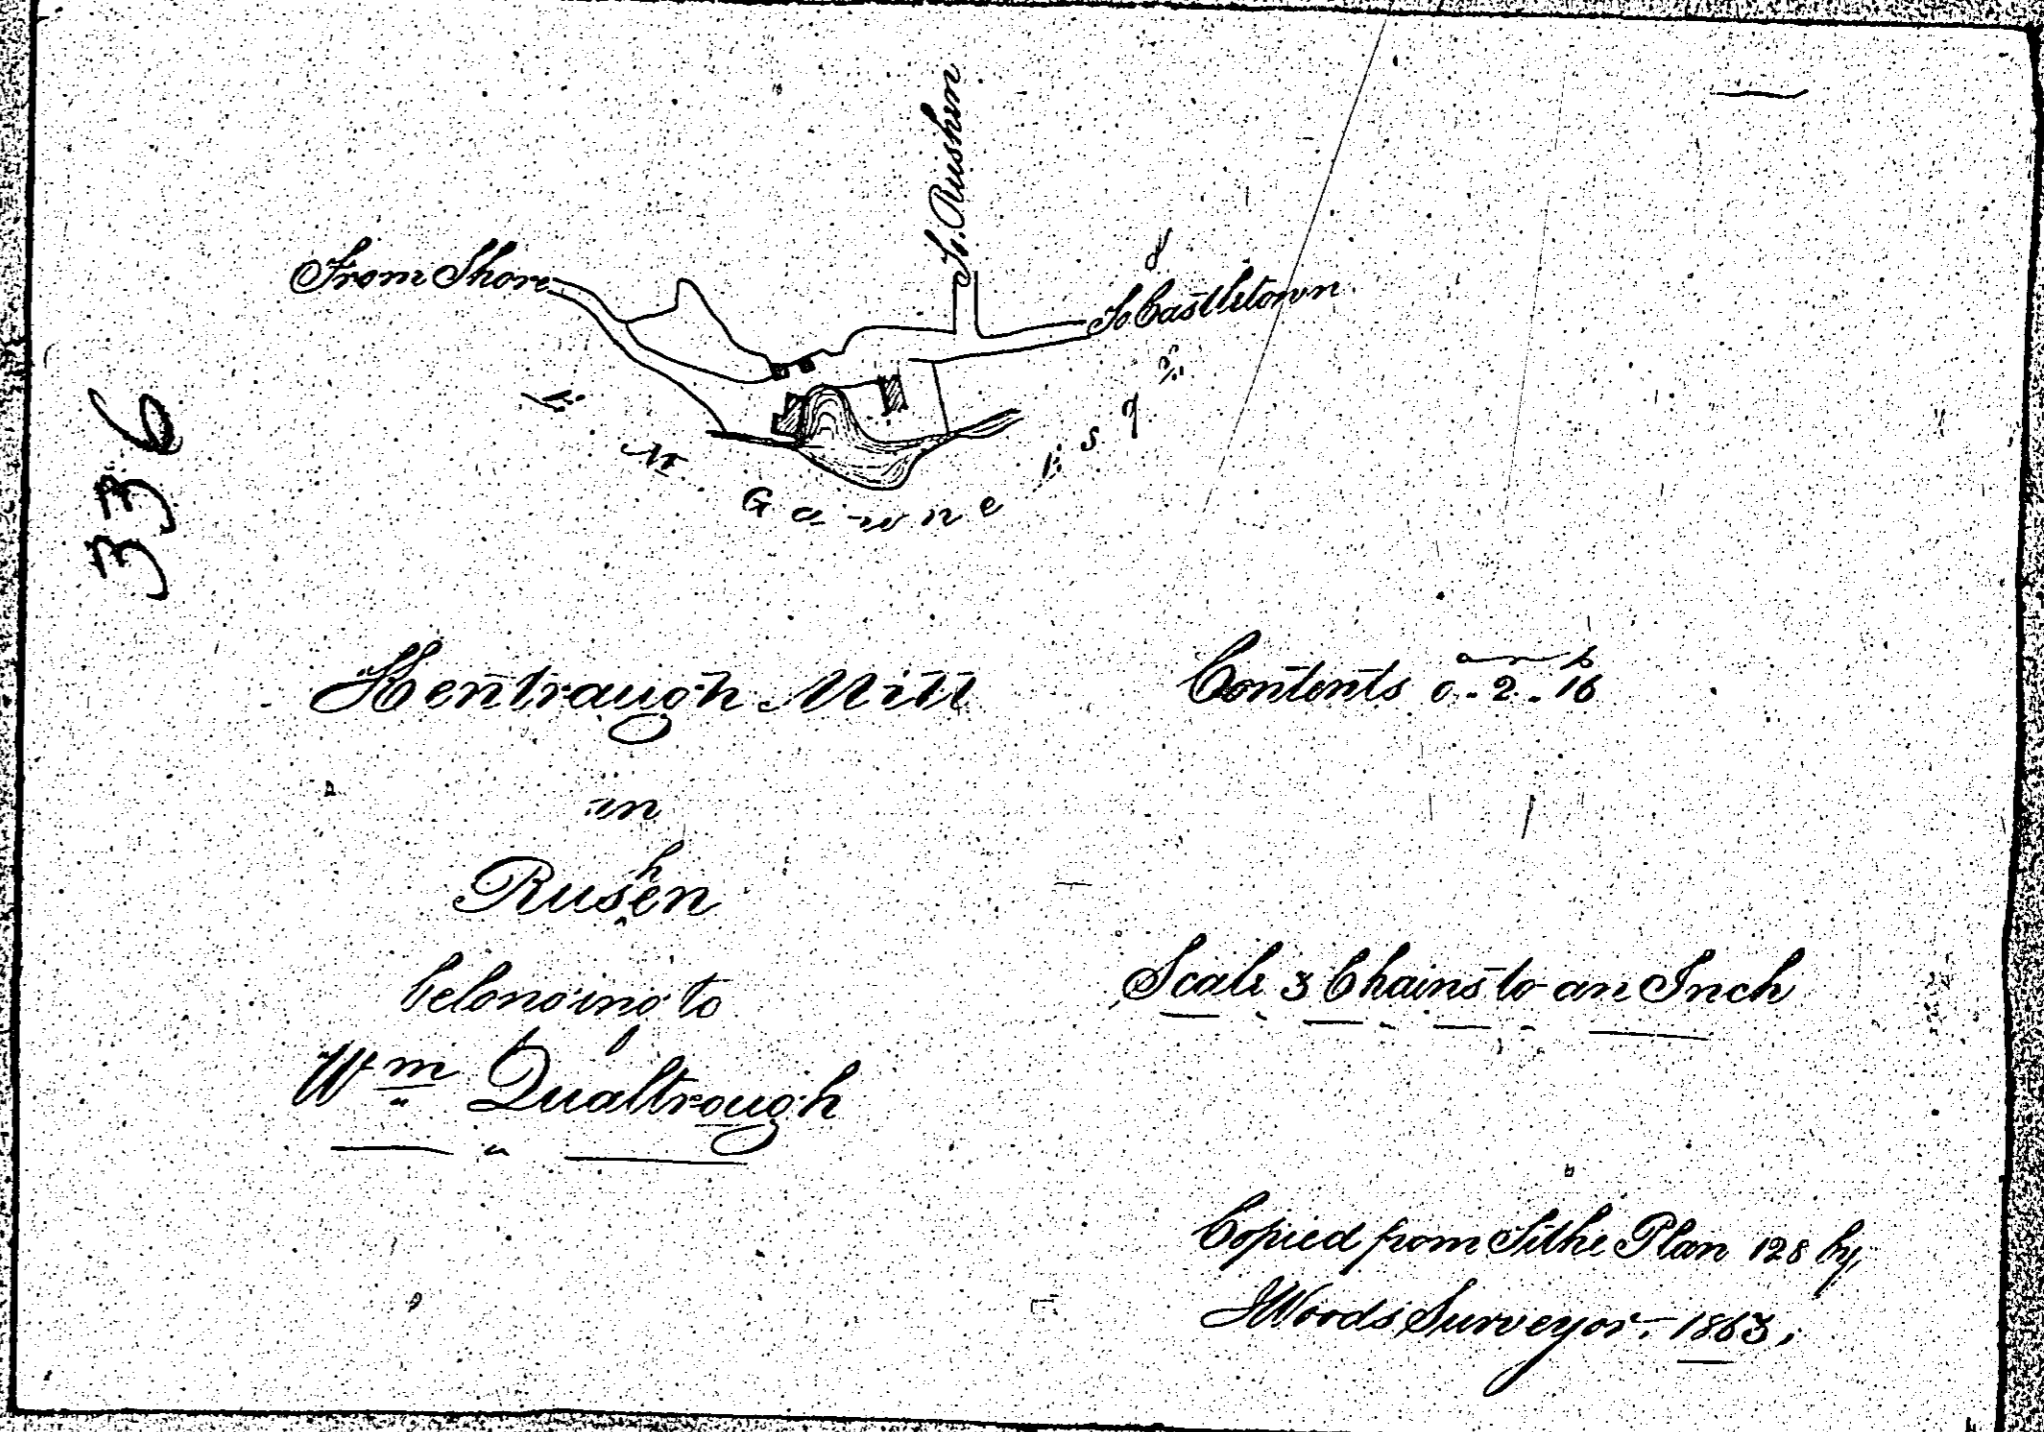 336
To Rushen
From Shore
To Castletown
E. M. Gawne Esqr
Kentraugh Mill
in
Rushen
belonging to
Wm Qualtrough
Contents
a r p
0 . 2 . 16
Scale 3 Chains to an Inch
Copied from Tithe Plan 128 by
J Woods Surveyor. 1863.